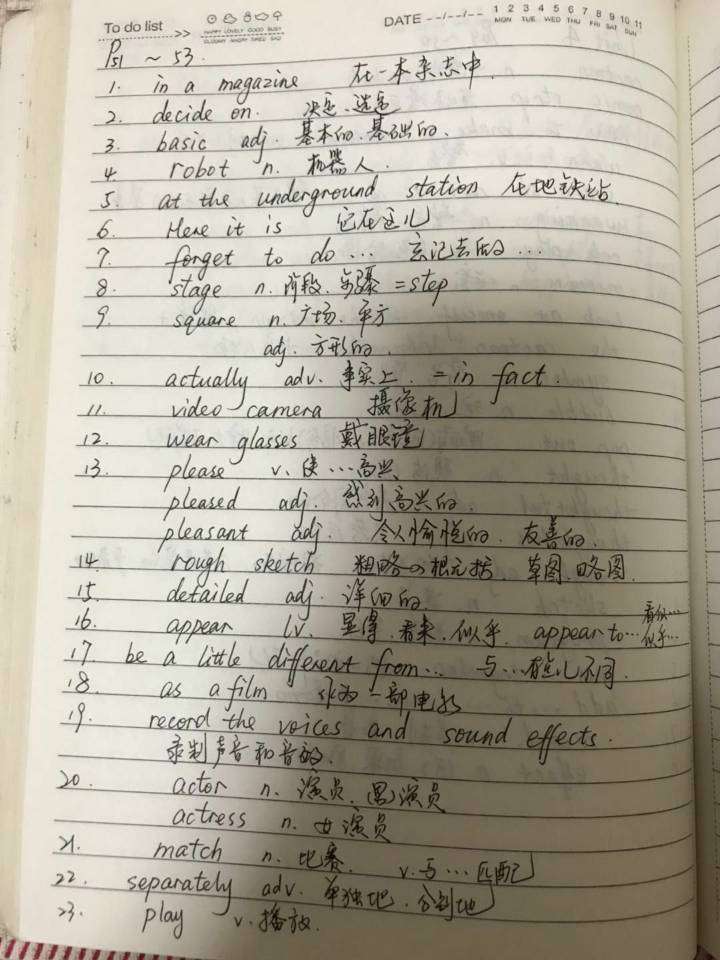 To do list >> HAPPY LOVELY GOOD BUSY DATE --/--/-- 1 2 3 4 5 6 7 8 9 10 11
CLOUDY ANGRY TIRED SAD MON TUE WED THU FRI SAT SUN
P51 ~ 53.
1. in a magazine 在一本杂志中.
2. decide on. 决定、选定
3. basic adj. 基本的.基础的.
4. robot n. 机器人.
5. at the underground station 在地铁站.
6. Here it is 它在这儿
7. forget to do ... 忘记去做...
8. stage n. 阶段.步骤 = step
9. square n. 广场.平方
adj. 方形的.
10. actually adv. 事实上. = in fact.
11. video camera 摄像机
12. wear glasses 戴眼镜
13. please v. 使...高兴
pleased adj. 感到高兴的.
pleasant adj. 令人愉悦的. 友善的.
14. rough sketch 草图.略图.
15. detailed adj. 详细的.
16. appear lv. 显得.看来.似乎. appear to... 看似... 似乎...
17. be a little different from... 与...有点儿不同.
18. as a film 作为一部电影
19. record the voices and sound effects.
录制声音和音效.
20. actor n. 演员.(男)演员
actress n. 女演员
21. match n. 比赛. v. 与...匹配
22. separately adv. 单独地.分别地
23. play v. 播放.